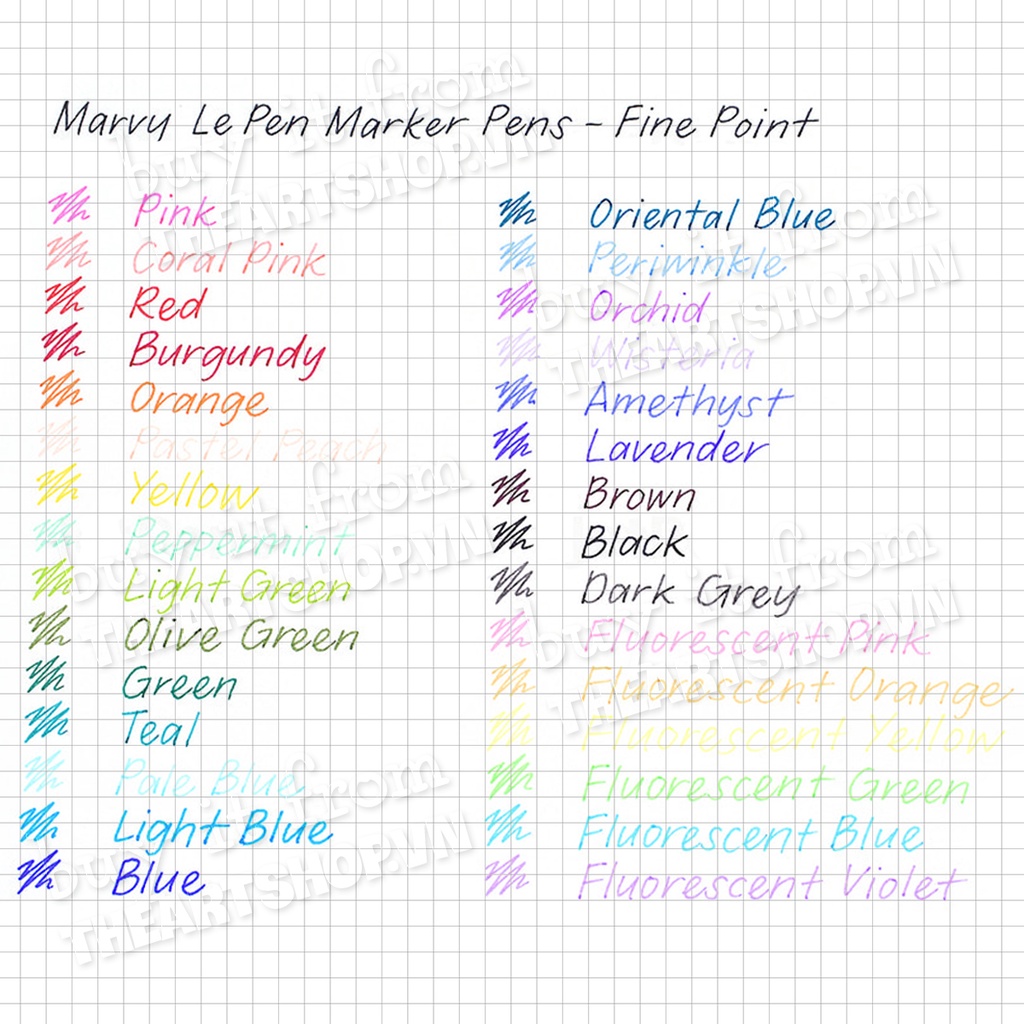 Marvy Le Pen Marker Pens - Fine Point
Pink
Coral Pink
Red
Burgundy
Orange
Pastel Peach
Yellow
Peppermint
Light Green
Olive Green
Green
Teal
Pale Blue
Light Blue
Blue
Oriental Blue
Periwinkle
Orchid
Wisteria
Amethyst
Lavender
Brown
Black
Dark Grey
Fluorescent Pink
Fluorescent Orange
Fluorescent Yellow
Fluorescent Green
Fluorescent Blue
Fluorescent Violet
buy it from
THEARTSHOP.VN
buy it from
THEARTSHOP.VN
buy it from
THEARTSHOP.VN
buy it from
THEARTSHOP.VN
buy it from
THEARTSHOP.VN